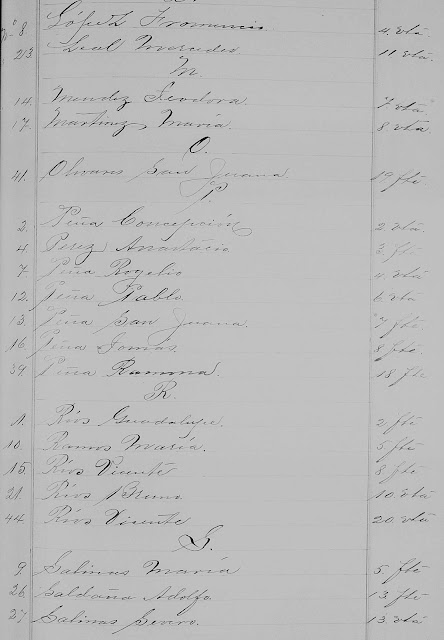 8 López 4 vtâ
23 Leal Mercedes 11 vtâ
M.
14. Mendez Teodora. 7 vtâ
17. Martinez Maria. 8 vtâ
O.
41. Olivares San Juana 19 fte
P.
2. Peña Concepción 2. vtâ
4. Perez Anastácio 3. fte
7 Peña Rogelio 4. vtâ
12. Peña Pablo. 6 vtâ
13. Peña San Juana. 7 fte
16 Peña Tomás. 8 fte.
39 Peña Ramona. 18 fte
R.
1. Ríos Guadalupe. 2 fte
10. Ramos Maria. 5 fte
15. Ríos Vicente 8 fte
21. Ríos Bruno 10 vtâ
44 Ríos Vicente 20. vtâ
S.
9. Salinas Maria 5 fte
26. Saldaña Adolfo 13 fte
27. Salinas Severo. 13 vtâ